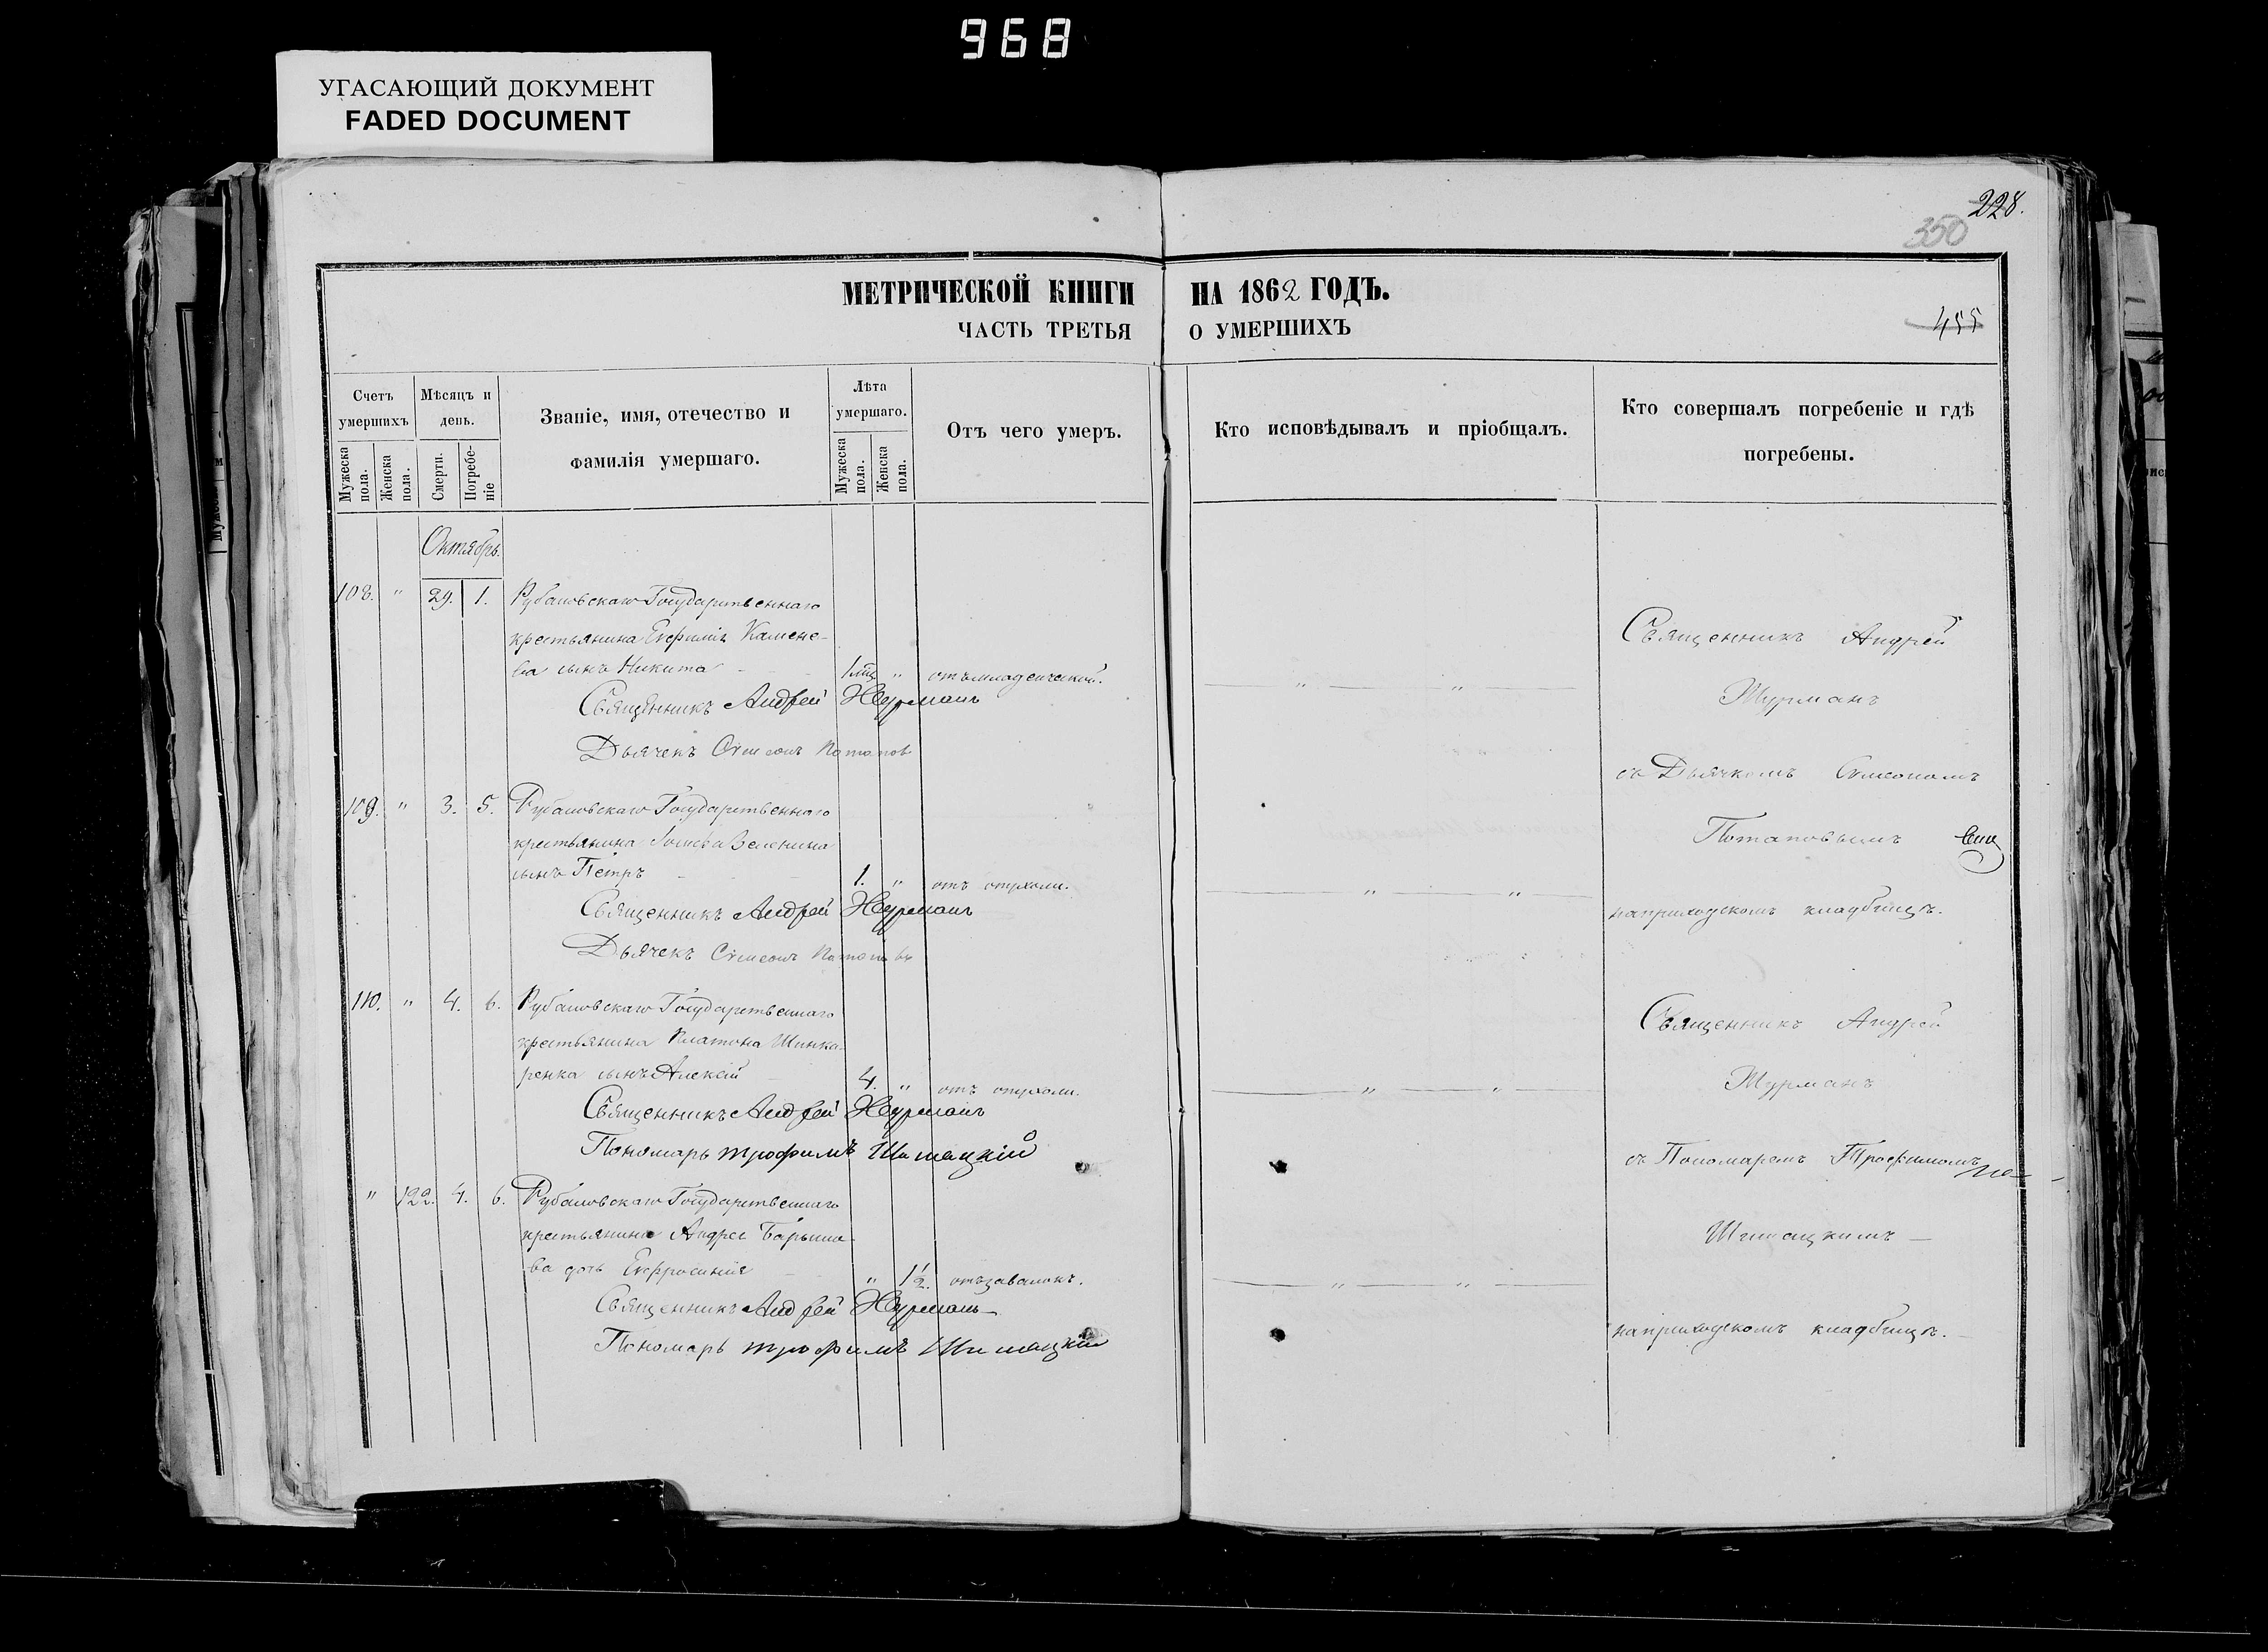 968
УГАСАЮЩИЙ ДОКУМЕНТ
FADED DOCUMENT
228.
350
МЕТРИЧЕСКОЙ КНИГИ НА 1862 ГОДЪ.
ЧАСТЬ ТРЕТЬЯ О УМЕРШИХЪ
455
Счетъ умершихъ
Мужеска пола.
Женска пола.
Мѣсяцъ и день.
Смерти.
Погребеніе
Званіе, имя, отечество и фамилія умершаго.
Лѣта умершаго.
Мужеска пола.
Женска пола.
Отъ чего умеръ.
Кто исповѣдывалъ и пріобщалъ.
Кто совершалъ погребеніе и гдѣ погребены.
Октябрь.
108. " 29. 1. Рубановскаго Государственнаго
крестьянина Евфимія Камене-
ва сынъ Никита 1 мц " отъ младенческой.
Священникъ Андрей Журманъ
Дьячекъ Сѵмеонъ Потапов
109. " 3. 5. Рубановскаго Государственнаго
крестьянина Зеленина
сынъ Петръ 1. " отъ опухоли.
Священникъ Андрей Журманъ
Дьячекъ Сѵмеонъ Потаповъ
110. " 4. 6. Рубановскаго Государственнаго
крестьянина Платона Шинка-
ренка сынъ Алексій 4. " отъ опухоли.
Священникъ Андрей Журманъ
Пономарь Трофимъ Шимацкій
" 122. 4. 6. Рубановскаго Государственнаго
крестьянина Андрея Барыше-
ва дочь Евфросинія " 1 1/2. отъ завалокъ.
Священникъ Андрей Журманъ
Пономарь Трофимъ Шимацкій
Священникъ Андрей
Журманъ
съ Дьячкомъ Сѵмеономъ
Потаповымъ
на приходскомъ кладбищѣ.
Священникъ Андрей
Журманъ
съ Пономаремъ Трофимомъ
Шимацкимъ
на приходскомъ кладбищѣ.